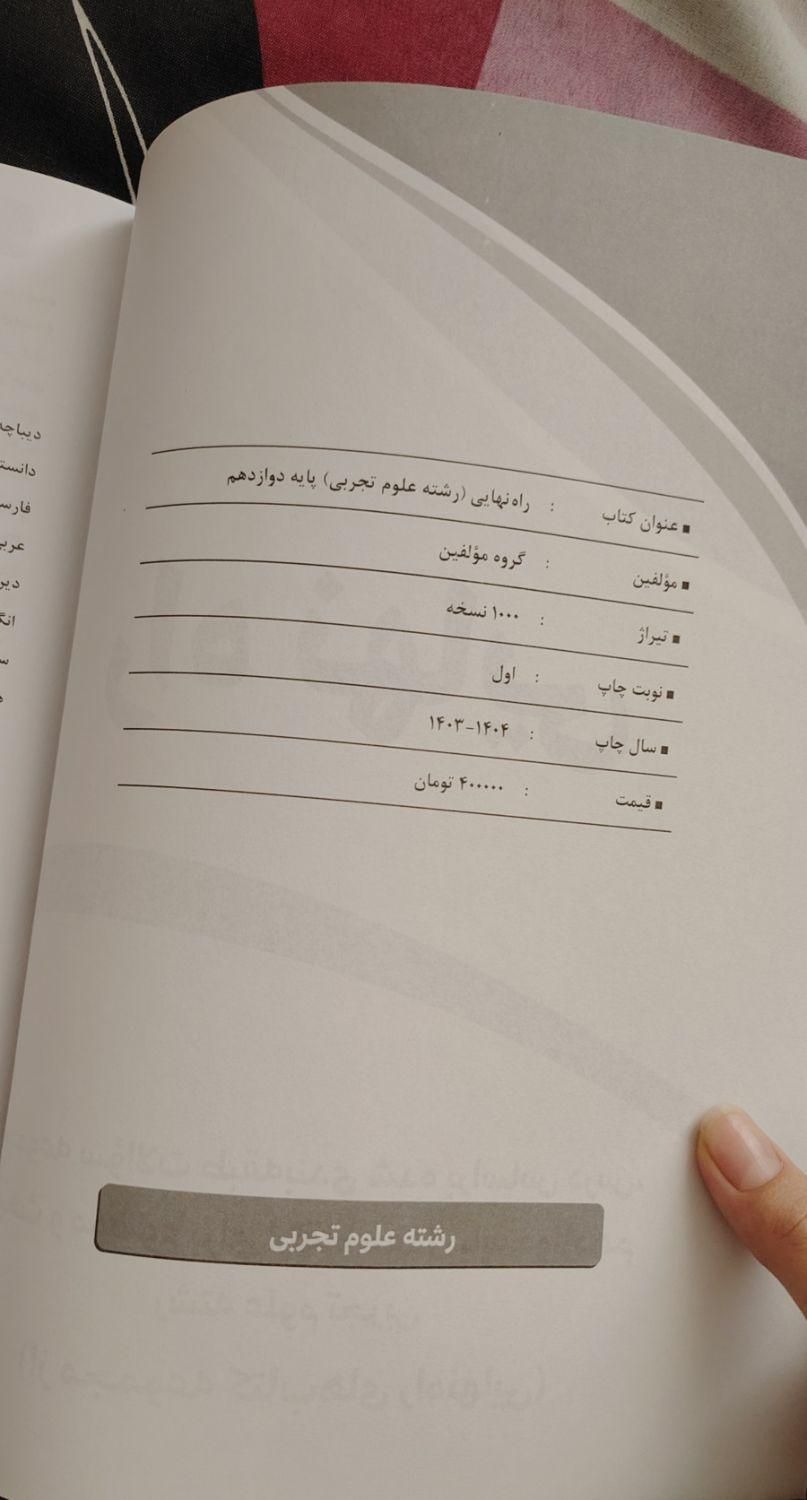 ■ عنوان کتاب : راه‌نهایی (رشته علوم تجربی) پایه دوازدهم
■ مؤلفین : گروه مؤلفین
■ تیراژ : ۱۰۰۰ نسخه
■ نوبت چاپ : اول
■ سال چاپ : ۱۴۰۴-۱۴۰۳
■ قیمت : ۴۰۰۰۰۰ تومان
رشته علوم تجربی
دیباچه